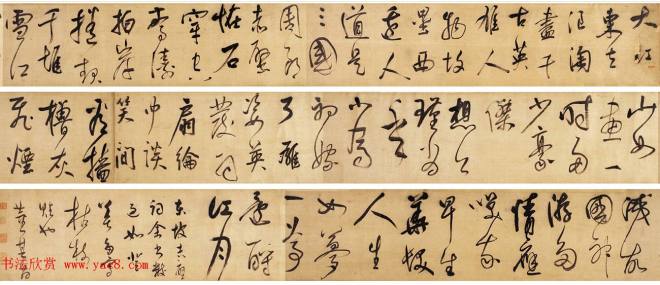 大江
東去
浪淘
盡千
古英
雄人
物故
壘西
邊人
道是
三國
周郎
赤壁
怪石
穿空
驚濤
拍岸
捲起
千堆
雪江
山如
畫一
時多
少豪
傑
想公
瑾當
年
小喬
初嫁
了雄
姿英
發羽
扇綸
巾談
笑間
灰
飛煙
滅故
國神
游多
情應
笑我
早生
華髮
人生
如夢
一尊
還酹
江月
東坡赤壁
詞余書數
董其昌
书法欣赏
www.yac8.com